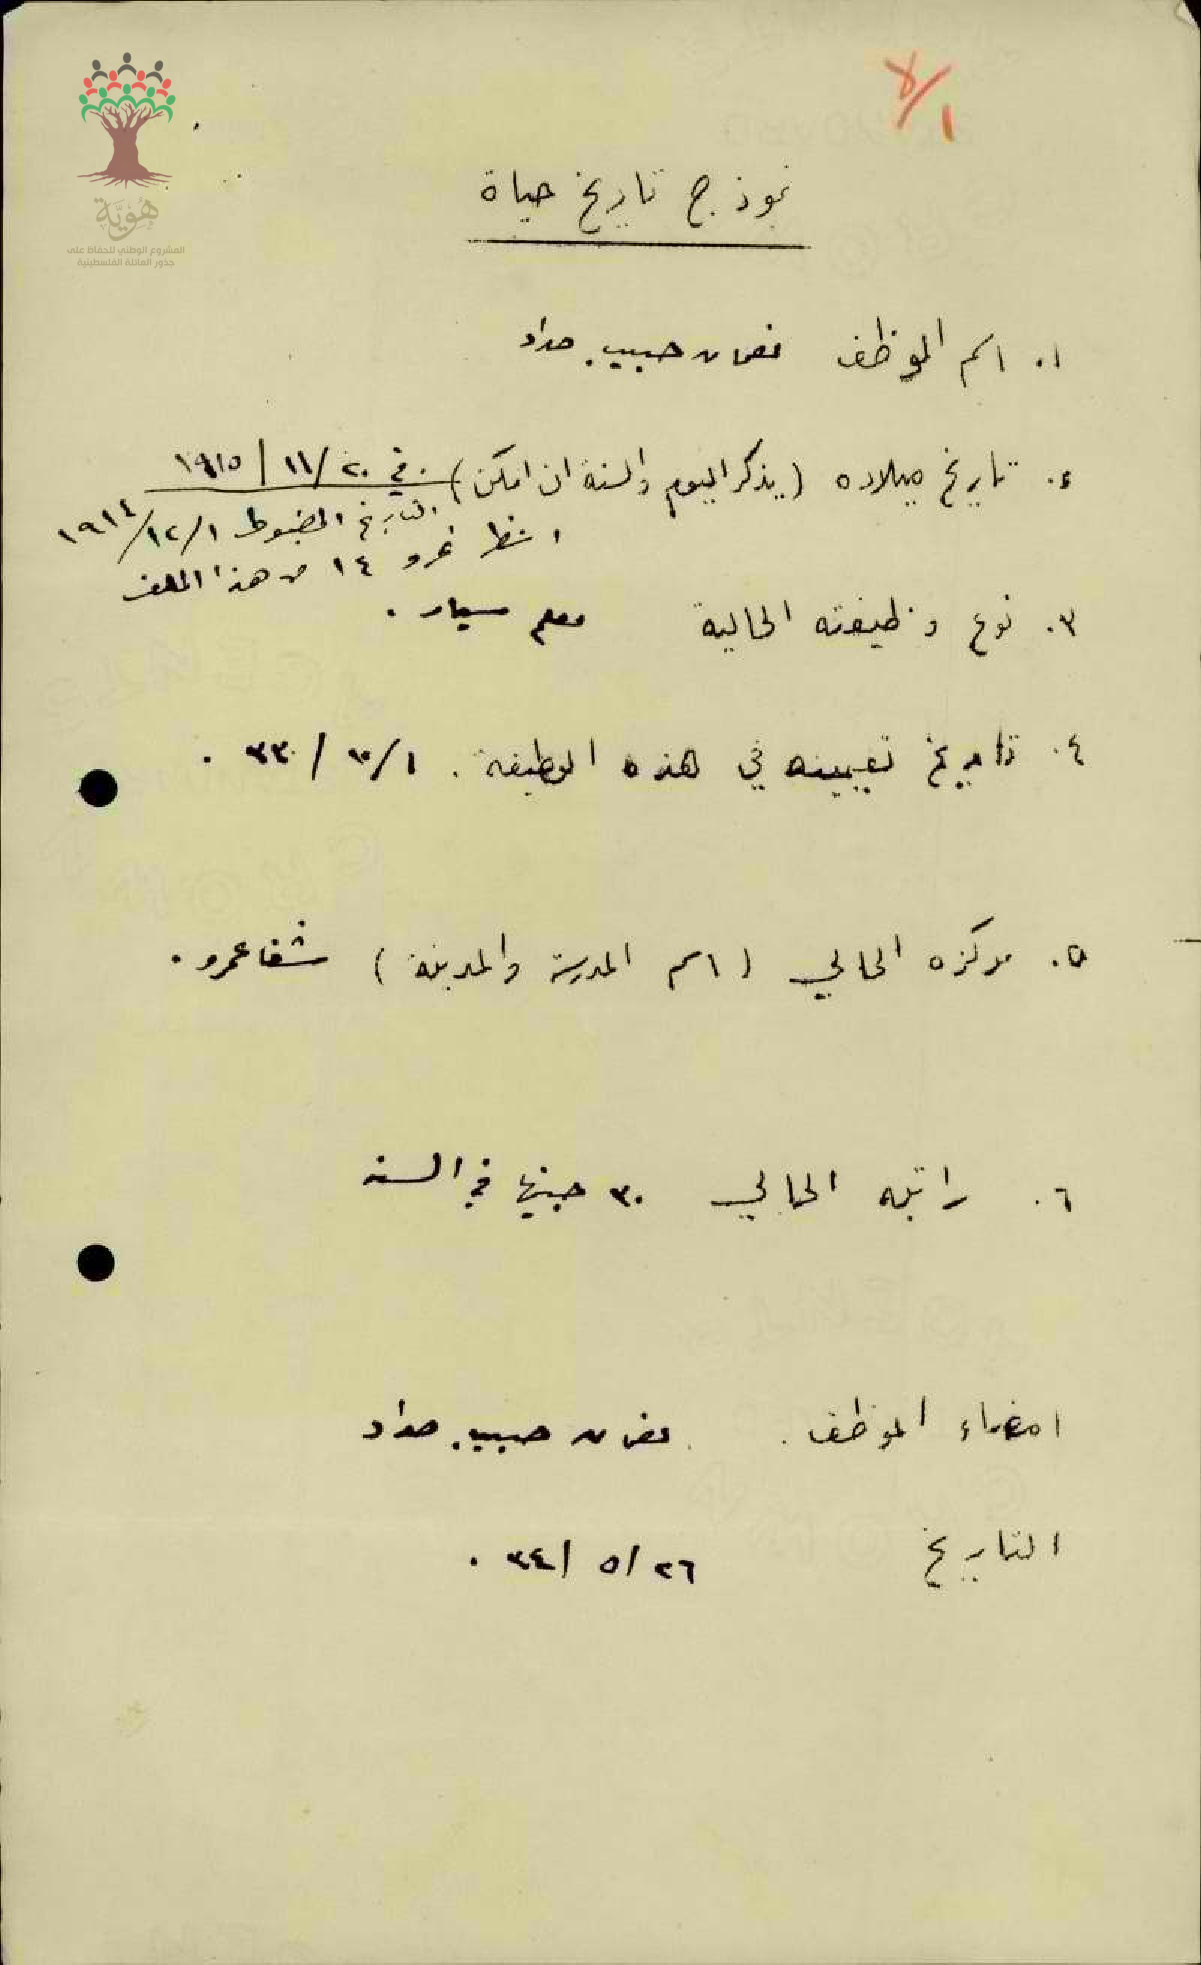 ٨/١
هُوِيَّة
المشروع الوطني للحفاظ على
جذور العائلة الفلسطينية
نموذج تاريخ حياة
١. اسم الموظف نعمان حبيب حداد
٢. تاريخ ميلاده (يذكر اليوم والسنة ان امكن) في ٢٠/١١/١٩١٥
التاريخ المضبوط ١/١٢/١٩١٤
انظر نمرو ١٤ من هذا الملف
٣. نوع وظيفته الحالية معلم سيار.
٤. تاريخ تعيينه في هذه الوظيفة. ١/٣/٣٣.
٥. مركزه الحالي (اسم المدرسة والمدينة) شفاعمرو.
٦. راتبه الحالي ٣٠ جنيها في السنة
امضاء الموظف. نعمان حبيب حداد
التاريخ ٢٦/٥/٣٤.